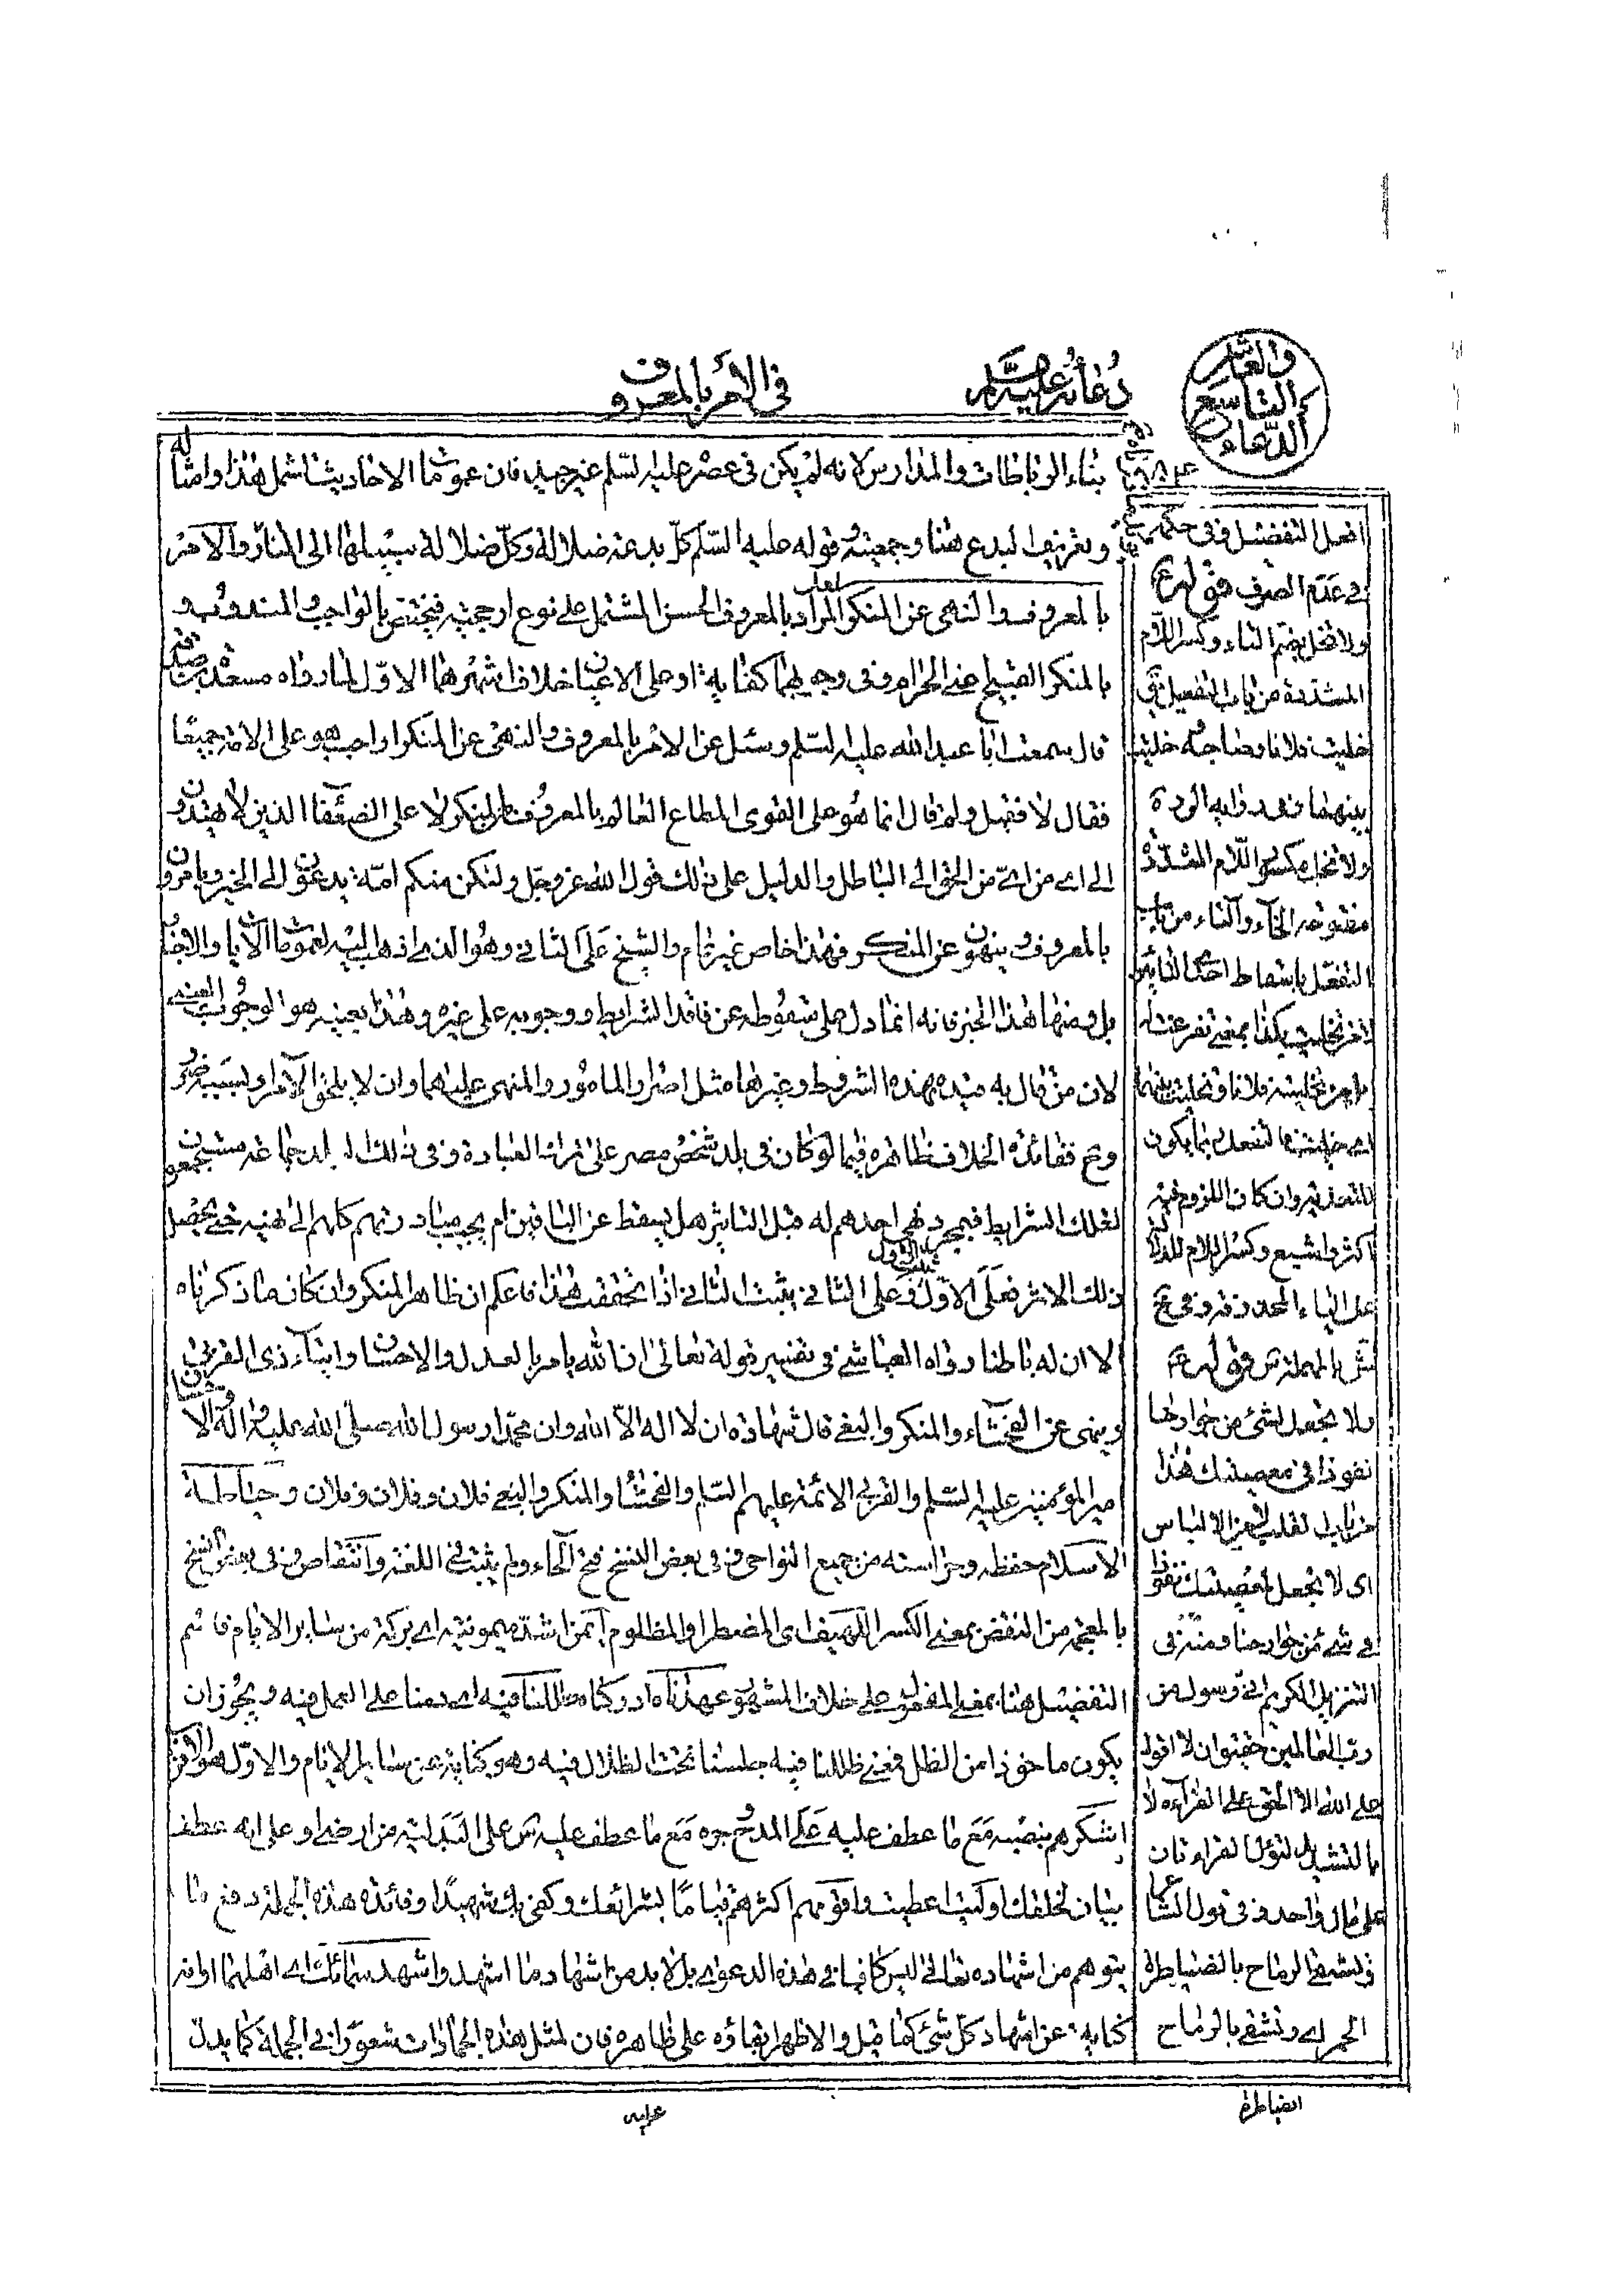 دعائه عليه السلام
في الأمر بالمعروف
الدعاء التاسع والعاشر
بناء الرباطات والمدارس لانه لم يكن في عصره عليه السلم غير جيد فان عمومات الاحاديث تشمل هذا وامثاله
وتعريف البدع هنا وجمعيته قوله عليه السلم كل بدعة ضلالة وكل ضلالة سبيلها الى النار والامر
بالمعروف والنهى عن المنكر المراد بالمعروف الحسن المشتمل على نوع ارجحية فيختص بالواجب والمندوب و
بالمنكر القبيح اعنى الحرام وفى وجوبهما كفاية او على الاعيان خلاف اشهرهما الاول لما رواه مسعدة بن صدقة
قال سمعت ابا عبد الله عليه السلم وسئل عن الامر بالمعروف والنهى عن المنكر اواجب هو على الامة جميعا
فقال لا فقيل ولم قال انما هو على القوى المطاع العالم بالمعروف من المنكر لا على الضعفا الذين لا يهتدون
الى اى من اى من الحق الى الباطل والدليل على ذلك قول الله عز وجل ولتكن منكم امة يدعون الى الخير ويامرون
بالمعروف وينهون عن المنكر فهذا خاص غير عام والشيخ على الثانى وهو الذى اذهب اليه لعمومات الايات والاخبار
بل ومنها هذا الخبر فانه انما دل على سقوطه عن فاقد الشرايط ووجوبه على غيره وهذا بعينه هو الوجوب العينى
لان من قال به قيده بهذه الشروط وغيرها مثل اصرار المامور والمنهى عليهما وان لا يلحق الامر بسببه ضرر
وح فقائدة الخلاف ظاهره فيما لو كان فى بلد شخص مصر على ترك العبادة وفى ذلك البلد جماعة مستجمعون
لتلك الشرايط فبمجرد نهى احدهم له قبل التاثير هل يسقط عن الباقين ام يجب مبادرتهم كلهم الى نهيه حتى يحصل
ذلك الاثر فعلى الاول يثبت الاول وعلى الثانى يثبت الثانى اذا تحققت هذا فاعلم ان ظاهر المنكر وان كان ما ذكرناه
الا ان له باطنا رواه العياشى فى تفسير قوله تعالى ان الله يامر بالعدل والاحسان وايتاء ذى القربى
وينهى عن الفحشاء والمنكر والبغى قال شهادة ان لا اله الا الله وان محمدا رسول الله صلى الله عليه واله والاحسان
امير المؤمنين عليه السلم والقربى الائمة عليهم السلم والفحشا والمنكر والبغى فلان وفلان وفلان وحياطة
الاسلام حفظه وحراسته من جميع النواحى وفى بعض النسخ فتح الحاء ولم يثبت فى اللغة وانتقاص وفى بعض النسخ
بالمعجمة من النقض بمعنى الكسر اللهيف اى المضطر او المظلوم ايمن اشد ميمونية اى بركة من ساير الايام فاسم
التفضيل هنا بمعنى المفعول على خلاف المشهور عهدناه ادركناه ظللنا فيه اى دمنا على العمل فيه ويجوز ان
يكون ماخوذا من الظل فمعنى ظللنا فيه جلسنا تحت الظلال فيه وهو كناية عن ساير الايام والاول هو الاظهر
اشكرهم بنصبه مع ما عطف عليه على المدح وجره مع ما عطف عليه س على البدلية من ارضى او على انه عطف
بيان لخلقك اوليت اعطيت واقومهم اكثرهم قياما بشرائعك وكفى بك شهيدا وفائدة هذه الجملة دفع ما
يتوهم من اشهاده تعالى ليس كافيا فى هذه الدعوى بل لا بد من اشهاد ما اشهد واشهد سمائك اى اهلهما او انه
كناية عن اشهاد كل شئ كما قيل والاظهر ابقاؤه على ظاهره فان لمثل هذه الجمادات شعورا فى الجملة كما يدل
عليه
افعل التفضيل وفى حكمه
فى عدم الصرف قوله ع
ولا تخل بضم التاء وكسر اللام
المشددة من باب التفعيل تق
خليت فلانا وصاحبه خليت
بينهما
ولا تخل مكسور اللام المشددة
مفتوحة الخاء والتاء من باب
التفعل باسقاط احدى التائين
لانه تخليت بكذا بمعنى تفرغت له
للتعدية وان كان اللزوم فيه
اكثر واشيع وكسر اللام للدلالة
على الياء المحذوفة وفى نسخة
س بالمهملة س قوله ع
ولا تجعل لشئ من جوارحنا
نفوذا فى معصيتك هذا
من باب القلب لامن الالباس
اى لا تجعل لمعصيتك نفوذا
فى شئ من جوارحنا ومنه فى
التنزيل الكريم انى رسول من
رب العالمين حقيق ان لا اقول
على الله الا الحق على القراءة لا
بالتشديد لتؤل القراءتان
على مال واحد وفى قول الشاعر
وتشقى الرماح بالضياطرة
الحمر اى وتشقى بالرماح
الضياطرة